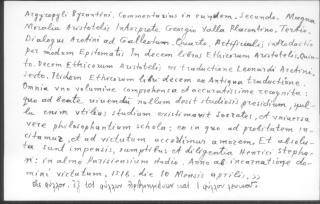 Argyropyli Byzantini. Commentarius in eundem. Secundo. Magna
Moralia Aristotelis Interprete Georgio Valla Placentino. Tertio.
Dialogus Aretini ad Galleotum. Quarto. Artificialis introductio
per modum Epitomatis In decem libros Ethicorum Aristotelis, Quin-
to. Decem Ethicorum Aristotelis ex traductione Leonardi Aretini,
Sexto. Itidem Ethicorum libri decem ex Antiqua traductione
Omnia uno volumine comprehensa et accuratissime recognita:
quo ad beate vivendum nullum desit studiosis presidium, nul-
lu enim utilius studium existimavit Socrates, et universa
vere philosophantium schola; eo in quo ad probitatem in-
citamur, et ad virtutum accendimur amorem, Et absolu-
ta sunt impensis, sumptibus et diligentia Henrici Stepha-
ni: in almo Parisiensium studio. Anno ab incarnatione do-
mini virtutum, 1516. die 10 Mensis aprilis. »